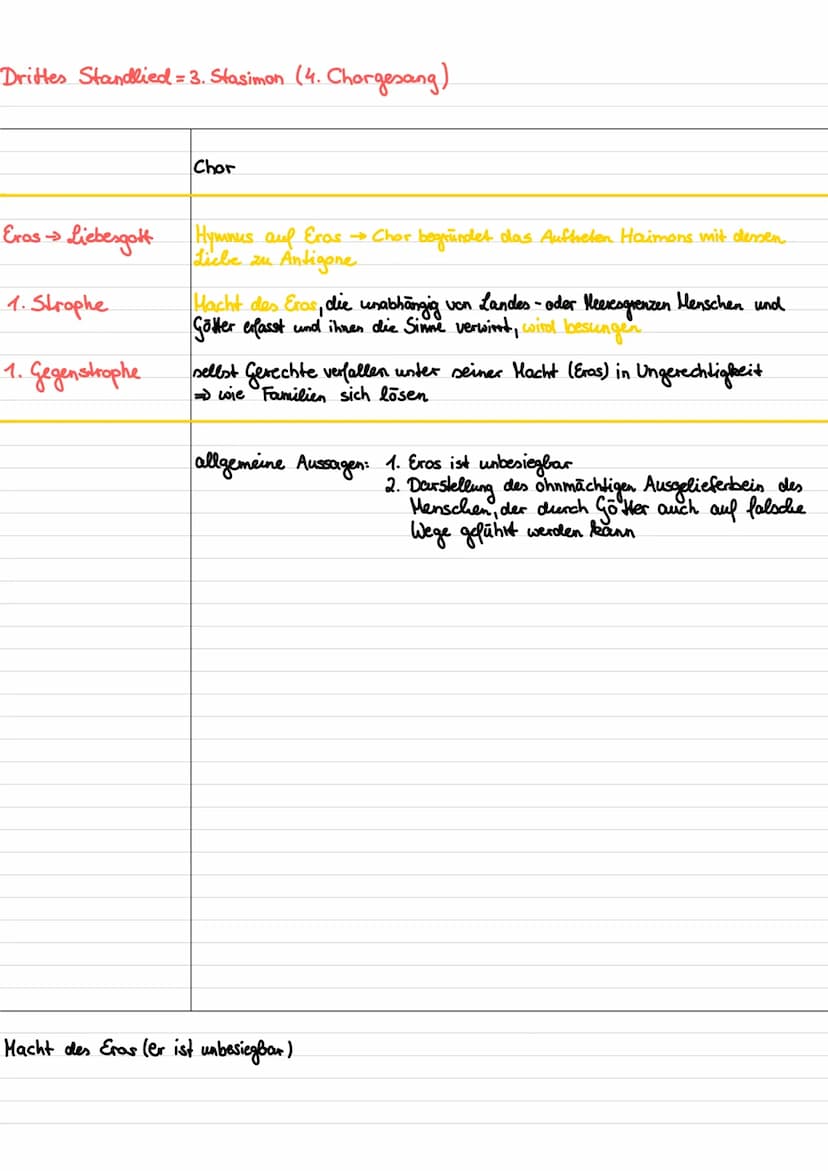 Drittes Standlied = 3. Stasimon (4. Chorgesang)
Chor
Eros → Liebesgott
Hymnus auf Eros → Chor begründet das Auftreten Haimons mit dessen
Liebe zu Antigone
1. Strophe
Macht des Eros, die unabhängig von Landes- oder Meeresgrenzen Menschen und
Götter erfasst und ihnen die Sinne verwirrt, wird besungen
1. Gegenstrophe
selbst Gerechte verfallen unter seiner Macht (Eros) in Ungerechtigkeit
⇒ wie Familien sich lösen
allgemeine Aussagen: 1. Eros ist unbesiegbar
2. Darstellung des ohnmächtigen Ausgelieferbein des
Menschen, der durch Götter auch auf falsche
Wege geführt werden kann
Macht des Eros (er ist unbesiegbar)